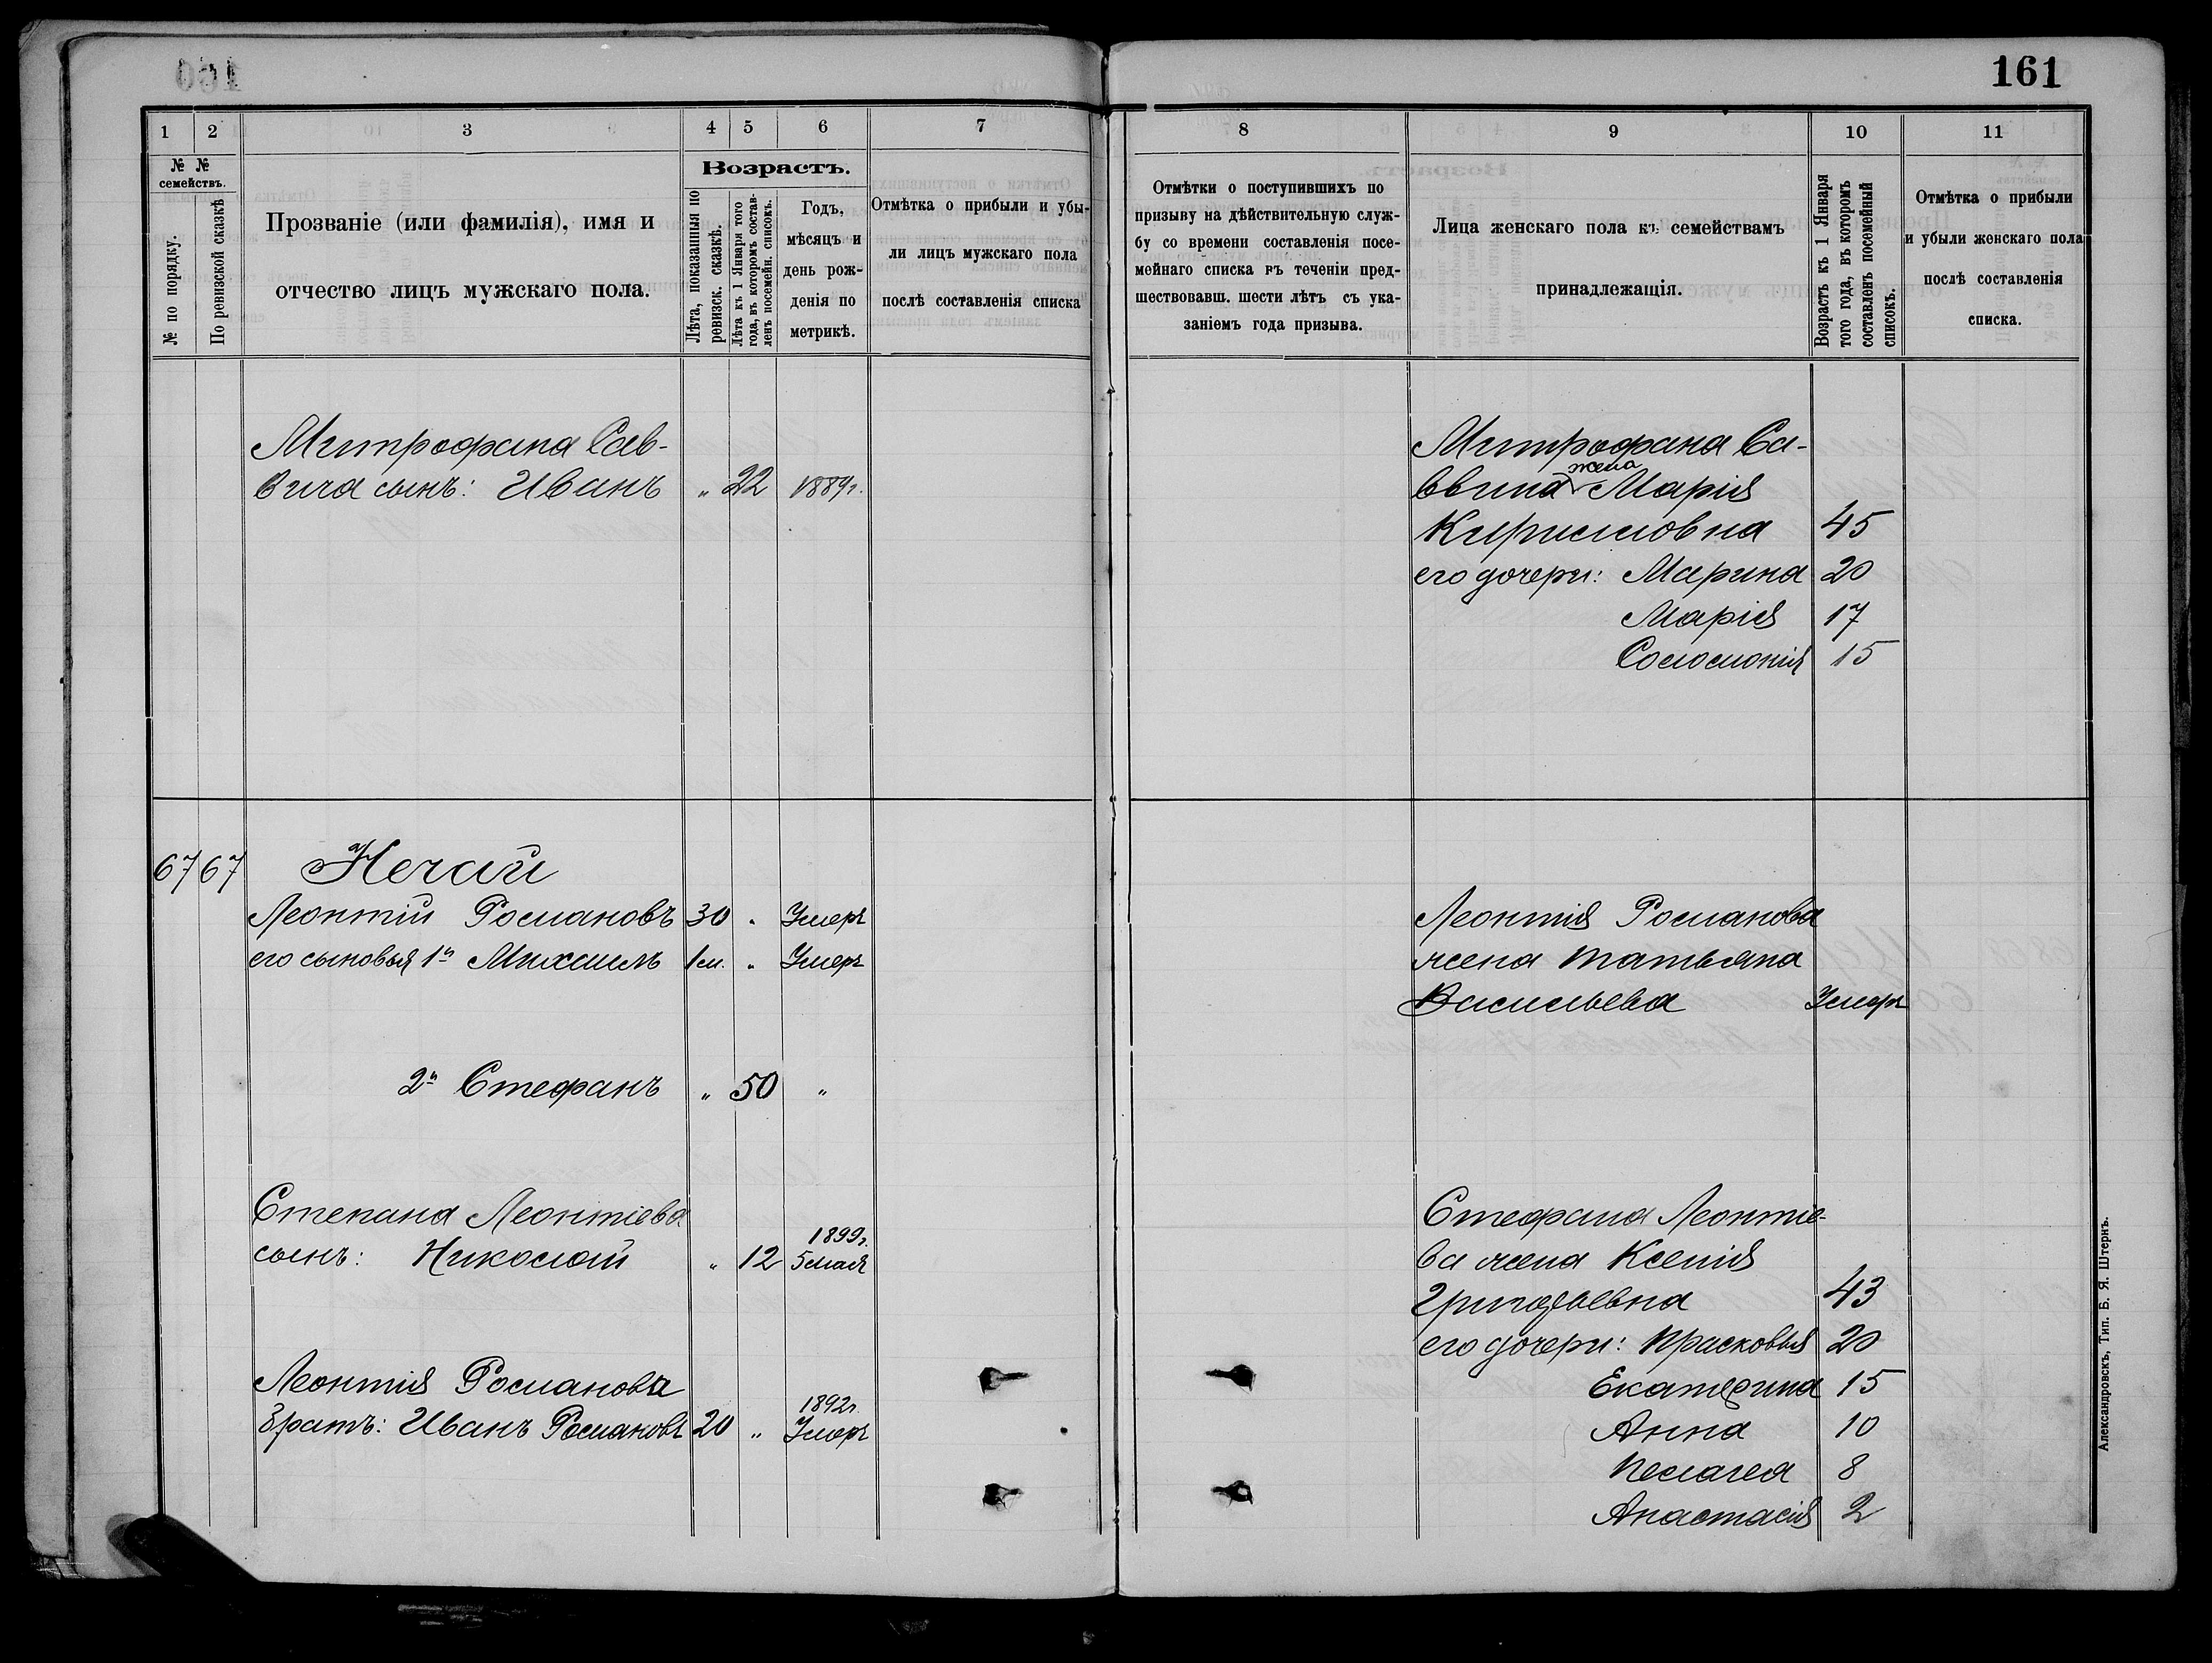 161
1 2 3 4 5 6 7
№ № семействъ.
№ по порядку.
По ревизской сказкѣ
Прозваніе (или фамилія), имя и
отчество лицъ мужскаго пола.
Возрастъ.
Лѣта, показанныя по
ревизск. сказкѣ.
Лѣта къ 1 Января того
года, въ которомъ состав-
ленъ посемейн. списокъ.
Годъ,
мѣсяцъ и
день рож-
денія по
метрикѣ.
Отмѣтка о прибыли и убы-
ли лицъ мужскаго пола
послѣ составленія списка
Митрофана Сав-
вича сынъ: Иванъ „ 22 1889г.
67 67 Нечай
Леонтій Романовъ 30 „ Умеръ
его сыновья 1й Михаилъ 1м. „ Умеръ
2й Стефанъ „ 50 „
Степана Леонтіева
1899г.
сынъ: Николай „ 12 5 мая
Леонтія Романова
1892г.
братъ: Иванъ Романовъ 20 „ Умеръ
8 9 10 11
Отмѣтки о поступившихъ по
призыву на дѣйствительную служ-
бу со времени составленія посе-
мейнаго списка въ теченіи пред-
шествовавш. шести лѣтъ съ ука-
заніемъ года призыва.
Лица женскаго пола къ семействамъ
принадлежащія.
Возрастъ къ 1 Января
того года, въ которомъ
составленъ посемейный
списокъ.
Отмѣтка о прибыли
и убыли женскаго пола
послѣ составленія
списка.
Митрофана Са-
жена
ввина Марія
Кирилловна 45
его дочери: Марина 20
Марія 17
Соломонія 15
Леонтія Романова
жена Татьяна
Васильева Умеръ
Стефана Леонтіе-
ва жена Ксенія
Григорьевна 43
его дочери: Прасковья 20
Екатерина 15
Анна 10
Пелагея 8
Анастасія 2
Александровскъ, Тип. Б. Я. Штернъ.